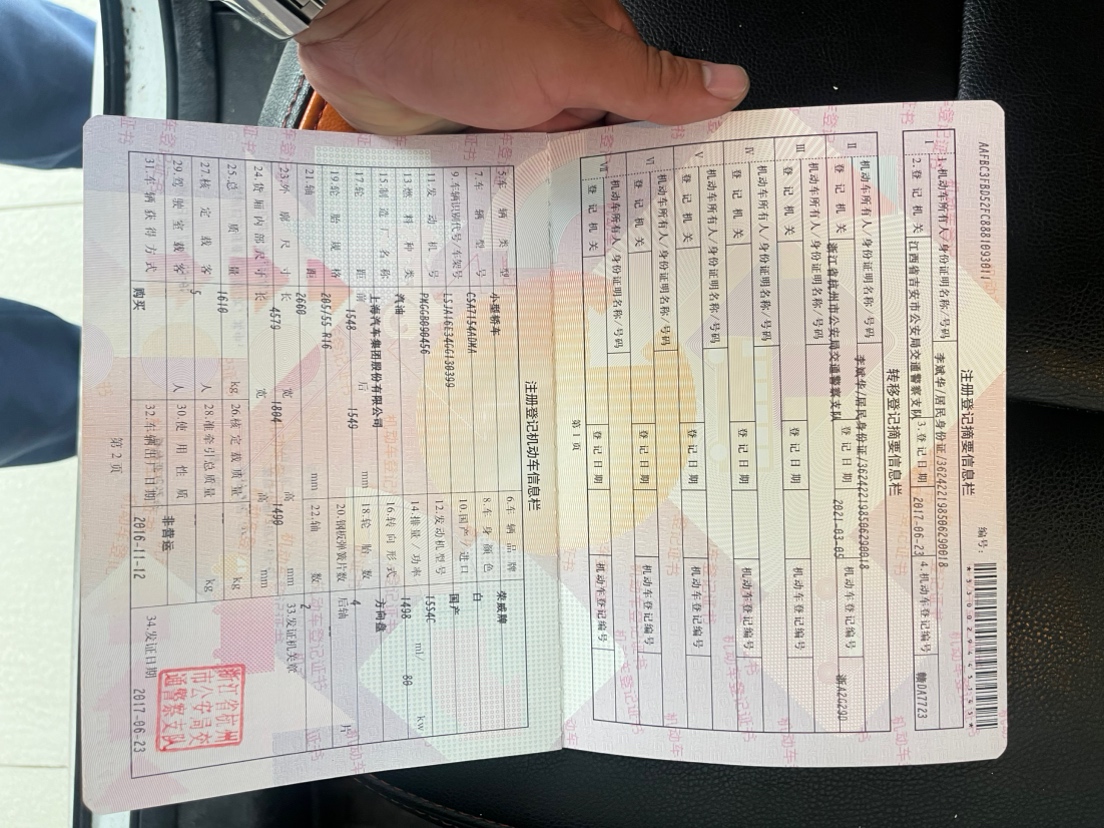 AAFBC3FBD52FC8881093011
编号:
注册登记摘要信息栏
I 1.机动车所有人/身份证明名称/号码 李斌华/居民身份证/362422198506290018
2.登记机关 江西省吉安市公安局交通警察支队 3.登记日期 2017-06-23 4.机动车登记编号 赣DA7723
转移登记摘要信息栏
II 机动车所有人/身份证明名称/号码 李斌华/居民身份证/362422198506290018
登记机关 浙江省杭州市公安局交通警察支队 登记日期 2021-03-05 机动车登记编号
III 机动车所有人/身份证明名称/号码
登记机关 登记日期 机动车登记编号
IV 机动车所有人/身份证明名称/号码
登记机关 登记日期 机动车登记编号
V 机动车所有人/身份证明名称/号码
登记机关 登记日期 机动车登记编号
VI 机动车所有人/身份证明名称/号码
登记机关 登记日期 机动车登记编号
VII 机动车所有人/身份证明名称/号码
登记机关 登记日期 机动车登记编号
第1页
注册登记机动车信息栏
5.车辆类型 小型轿车 6.车辆品牌 荣威牌
7.车辆型号 CSA7154ADMA 8.车身颜色 白
9.车辆识别代号/车架号 LSJA16E34GG130399 10.国产/进口 国产
11.发动机号 PMGGB090456 12.发动机型号 15S4C
13.燃料种类 汽油 14.排量/功率 1498 ml/ 80 kw
15.制造厂名称 上海汽车集团股份有限公司 16.转向形式 方向盘
17.轮距 前 1548 后 1549 mm 18.轮胎数 4
19.轮胎规格 205/55 R16 20.钢板弹簧片数 后轴
21.轴距 2660 mm 22.轴数 2
23.外廓尺寸 长 4579 宽 1804 高 1490 mm 33.发证机关章
24.货厢内部尺寸 长 宽 高 mm
25.总质量 1610 kg 26.核定载质量 kg
27.核定载客 5 人 28.准牵引总质量 kg
29.驾驶室载客 人 30.使用性质 非营运
31.车辆获得方式 购买 32.车辆出厂日期 2016-11-12 34.发证日期 2017-06-23
浙江省杭州市公安局交通警察支队
第2页